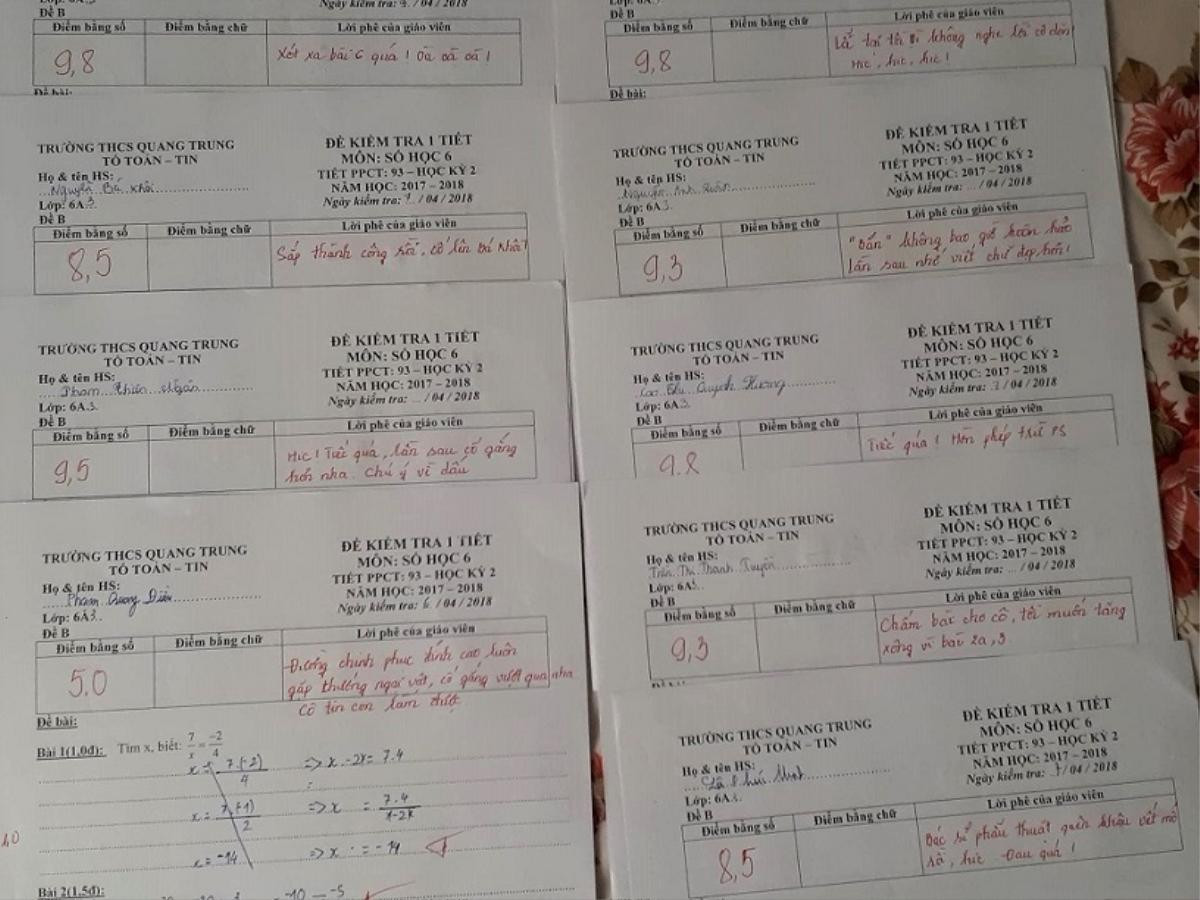 Ngày kiểm tra: 7. / 04 / 2018
Đề B
Điểm bằng số Điểm bằng chữ Lời phê của giáo viên
9,8
Xót xa bài 6 quá! Oà oà oà!
Đề bài:
TRƯỜNG THCS QUANG TRUNG
TỔ TOÁN – TIN
ĐỀ KIỂM TRA 1 TIẾT
MÔN: SỐ HỌC 6
TIẾT PPCT: 93 – HỌC KỲ 2
NĂM HỌC: 2017 – 2018
Ngày kiểm tra: 7. / 04 / 2018
Họ & tên HS:
Nguyễn Bá Khôi
Lớp: 6A3.
Đề B
Điểm bằng số Điểm bằng chữ Lời phê của giáo viên
8,5
Sắp thành công rồi, cố lên Bá Khôi!
TRƯỜNG THCS QUANG TRUNG
TỔ TOÁN – TIN
ĐỀ KIỂM TRA 1 TIẾT
MÔN: SỐ HỌC 6
TIẾT PPCT: 93 – HỌC KỲ 2
NĂM HỌC: 2017 – 2018
Ngày kiểm tra: ... / 04 / 2018
Họ & tên HS:
Phạm Thiên Ngân
Lớp: 6A.3.
Đề B
Điểm bằng số Điểm bằng chữ Lời phê của giáo viên
9,5
Hic! Tiếc quá, lần sau cố gắng
hơn nha. Chú ý về dấu
TRƯỜNG THCS QUANG TRUNG
TỔ TOÁN – TIN
ĐỀ KIỂM TRA 1 TIẾT
MÔN: SỐ HỌC 6
TIẾT PPCT: 93 – HỌC KỲ 2
NĂM HỌC: 2017 – 2018
Ngày kiểm tra: 6 / 04 / 2018
Họ & tên HS:
Phạm Dương
Lớp: 6A3..
Đề B
Điểm bằng số Điểm bằng chữ Lời phê của giáo viên
5.0
Đường chinh phục đỉnh cao luôn
gặp chướng ngại vật, cố gắng vượt qua nha
Cô tin con làm được
Đề bài:
Bài 1(1,0đ): Tìm x, biết: 7/x = -2/4
x = 7.(-2)/4 => x.-2x = 7.4
x = 7.(-1)/2 => x = 7.4/1-2x
1,0
x = -14 => x = -14
Bài 2(1,5đ): -10 = -5
Đề B
Điểm bằng số Điểm bằng chữ Lời phê của giáo viên
9,8
không nghe lời cô dặn
Hic, hic, hic!
Đề bài:
TRƯỜNG THCS QUANG TRUNG
TỔ TOÁN – TIN
ĐỀ KIỂM TRA 1 TIẾT
MÔN: SỐ HỌC 6
TIẾT PPCT: 93 – HỌC KỲ 2
NĂM HỌC: 2017 – 2018
Ngày kiểm tra: ... / 04 / 2018
Họ & tên HS:
Nguyễn Anh
Lớp: 6A3.
Đề B
Điểm bằng số Điểm bằng chữ Lời phê của giáo viên
9,3
không bao giờ hoàn hảo
lần sau nhớ viết chữ đẹp hơn!
TRƯỜNG THCS QUANG TRUNG
TỔ TOÁN – TIN
ĐỀ KIỂM TRA 1 TIẾT
MÔN: SỐ HỌC 6
TIẾT PPCT: 93 – HỌC KỲ 2
NĂM HỌC: 2017 – 2018
Ngày kiểm tra: 7. / 04 / 2018
Họ & tên HS:
Cao Thị Quỳnh Hương
Lớp: 6A.3
Đề B
Điểm bằng số Điểm bằng chữ Lời phê của giáo viên
9.8
Tiếc quá! Hỏn phép trừ PS
TRƯỜNG THCS QUANG TRUNG
TỔ TOÁN – TIN
ĐỀ KIỂM TRA 1 TIẾT
MÔN: SỐ HỌC 6
TIẾT PPCT: 93 – HỌC KỲ 2
NĂM HỌC: 2017 – 2018
Ngày kiểm tra: ... / 04 / 2018
Họ & tên HS:
Trần Thị Thanh Tuyền
Lớp: 6A3..
Đề B
Điểm bằng số Điểm bằng chữ Lời phê của giáo viên
9,3
Chấm bài cho cô, tôi muốn tăng
xông vì bài 2a, 3
TRƯỜNG THCS QUANG TRUNG
TỔ TOÁN – TIN
ĐỀ KIỂM TRA 1 TIẾT
MÔN: SỐ HỌC 6
TIẾT PPCT: 93 – HỌC KỲ 2
NĂM HỌC: 2017 – 2018
Ngày kiểm tra: 7 / 04 / 2018
Họ & tên HS:
Lớp: 6A3.
Đề B
Điểm bằng số Điểm bằng chữ Lời phê của giáo viên
8,5
Bác sĩ phẫu thuật quên khâu vết mổ
rồi, hic Đau quá!